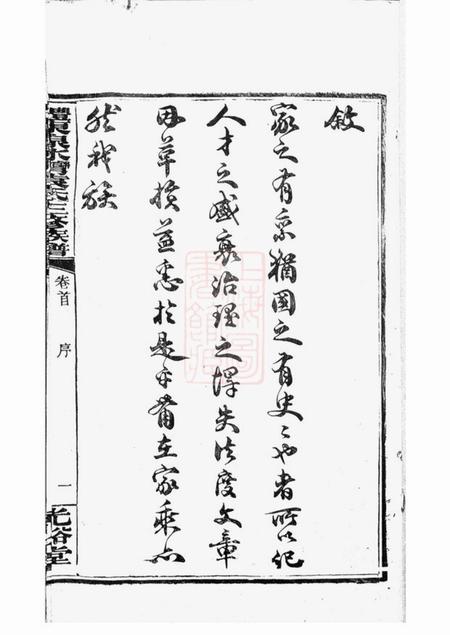 敘
家之有乘猶國之有史〻也者所以紀
人才之盛衰治理之得失法度文章
因革損益悉於是乎備在家乘亦
然我族
氏三修族譜
卷首
序
一
光裕堂